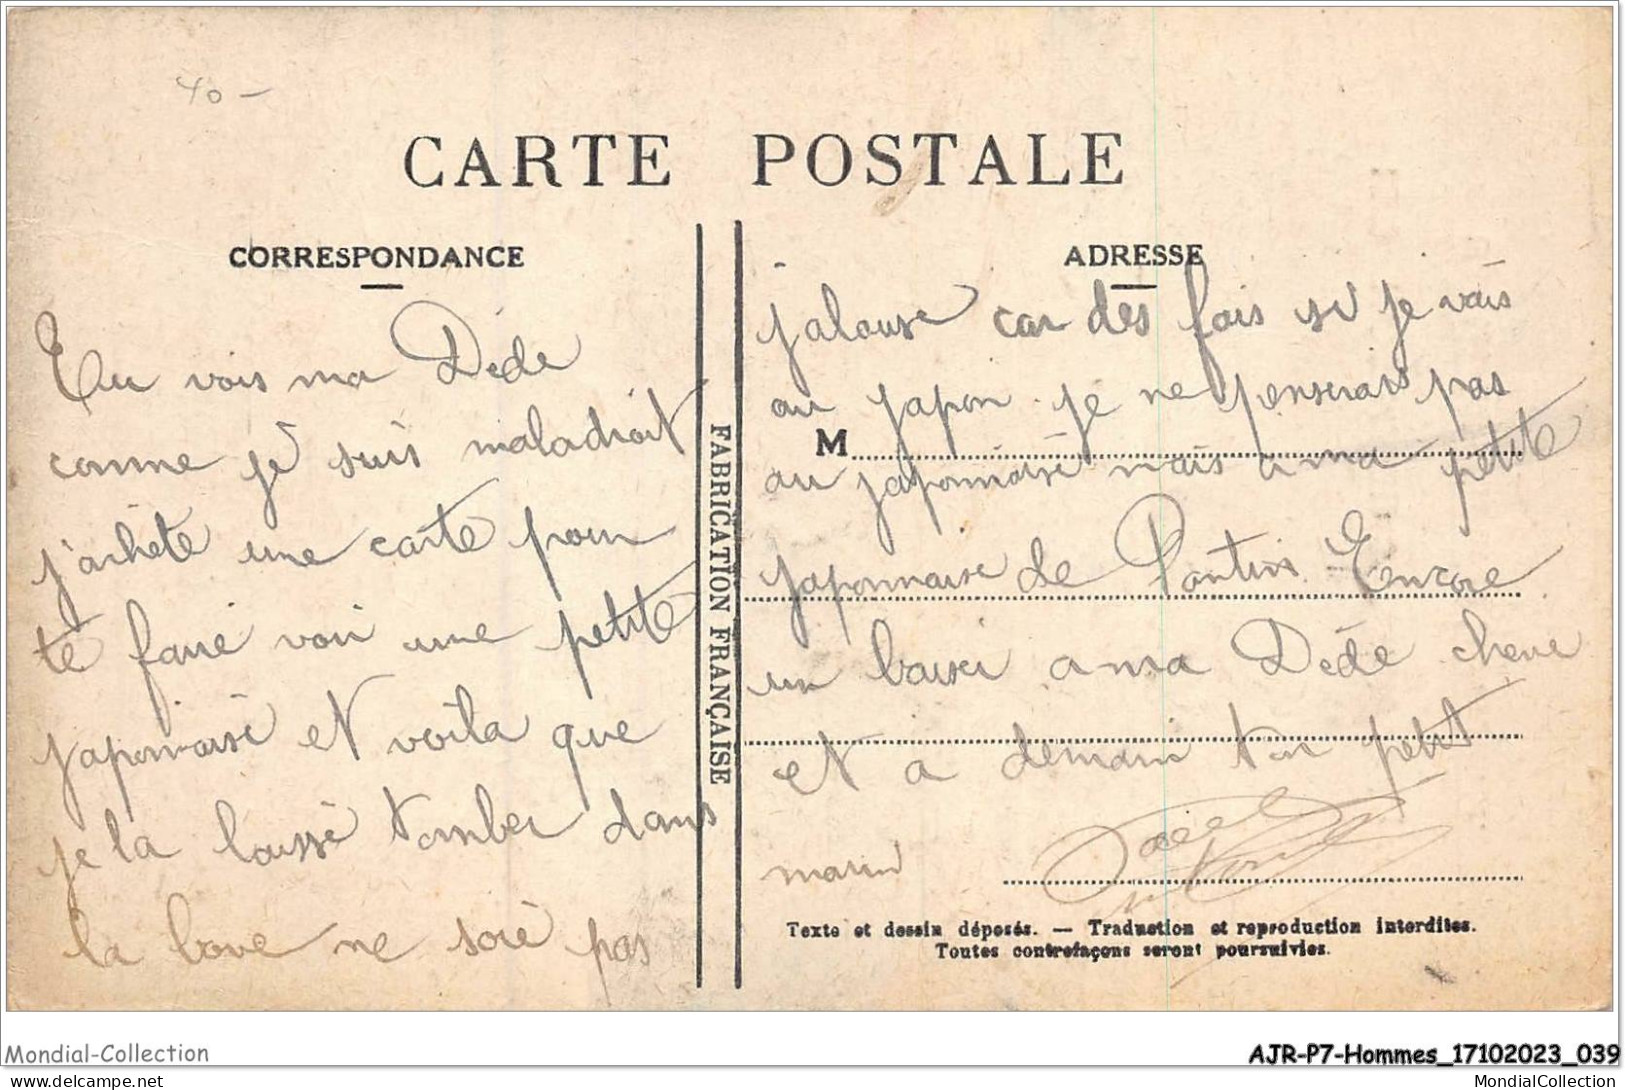 40 -
CARTE POSTALE
CORRESPONDANCE
Tu vois ma Dédé
comme je suis maladroit
j'achète une carte pour
te faire voir une petite
japonnaise et voila que
je la laissé tomber dans
la boue ne soie pas
FABRICATION FRANÇAISE
ADRESSE
jalouse car des fois si je vais
au japon je ne penserais pas
M
au japonnaise mais a ma petite
japonnaise de Pantin. Encore
un baiser a ma Dédé cherie
et a demain ton petit
marin
Texte et dessin déposés. — Traduction et reproduction interdites.
Toutes contrefaçons seront poursuivies.
Mondial-Collection
AJR-P7-Hommes_17102023_039
delcampe.net
MondialCollection